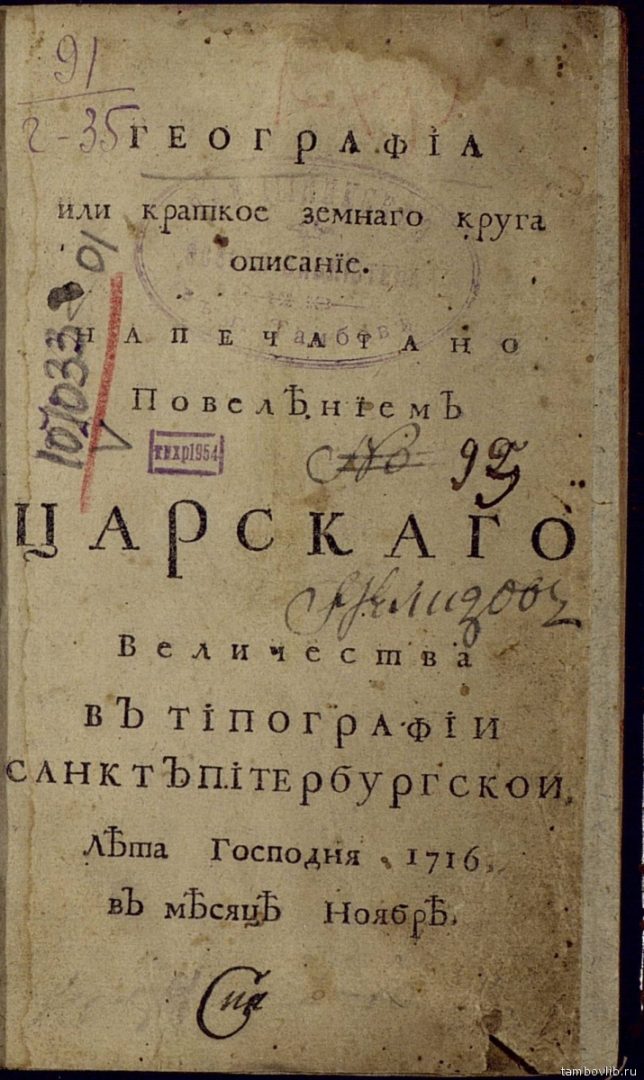 91
г-35
ГЕОГРАФІА
или краткое земнаго круга
описанїе.
НАПЕЧАТАНО
Повелѣнїемъ
1070332 01
тихр1954
№ 92
ЦАРСКАГО
Величества
ВЪ ТІПОГРАФІИ
САНКТЪПІТЕРБУРГСКОИ,
лѣта Господня 1716,
въ мѣсяцѣ Ноябрѣ.
tambovlib.ru